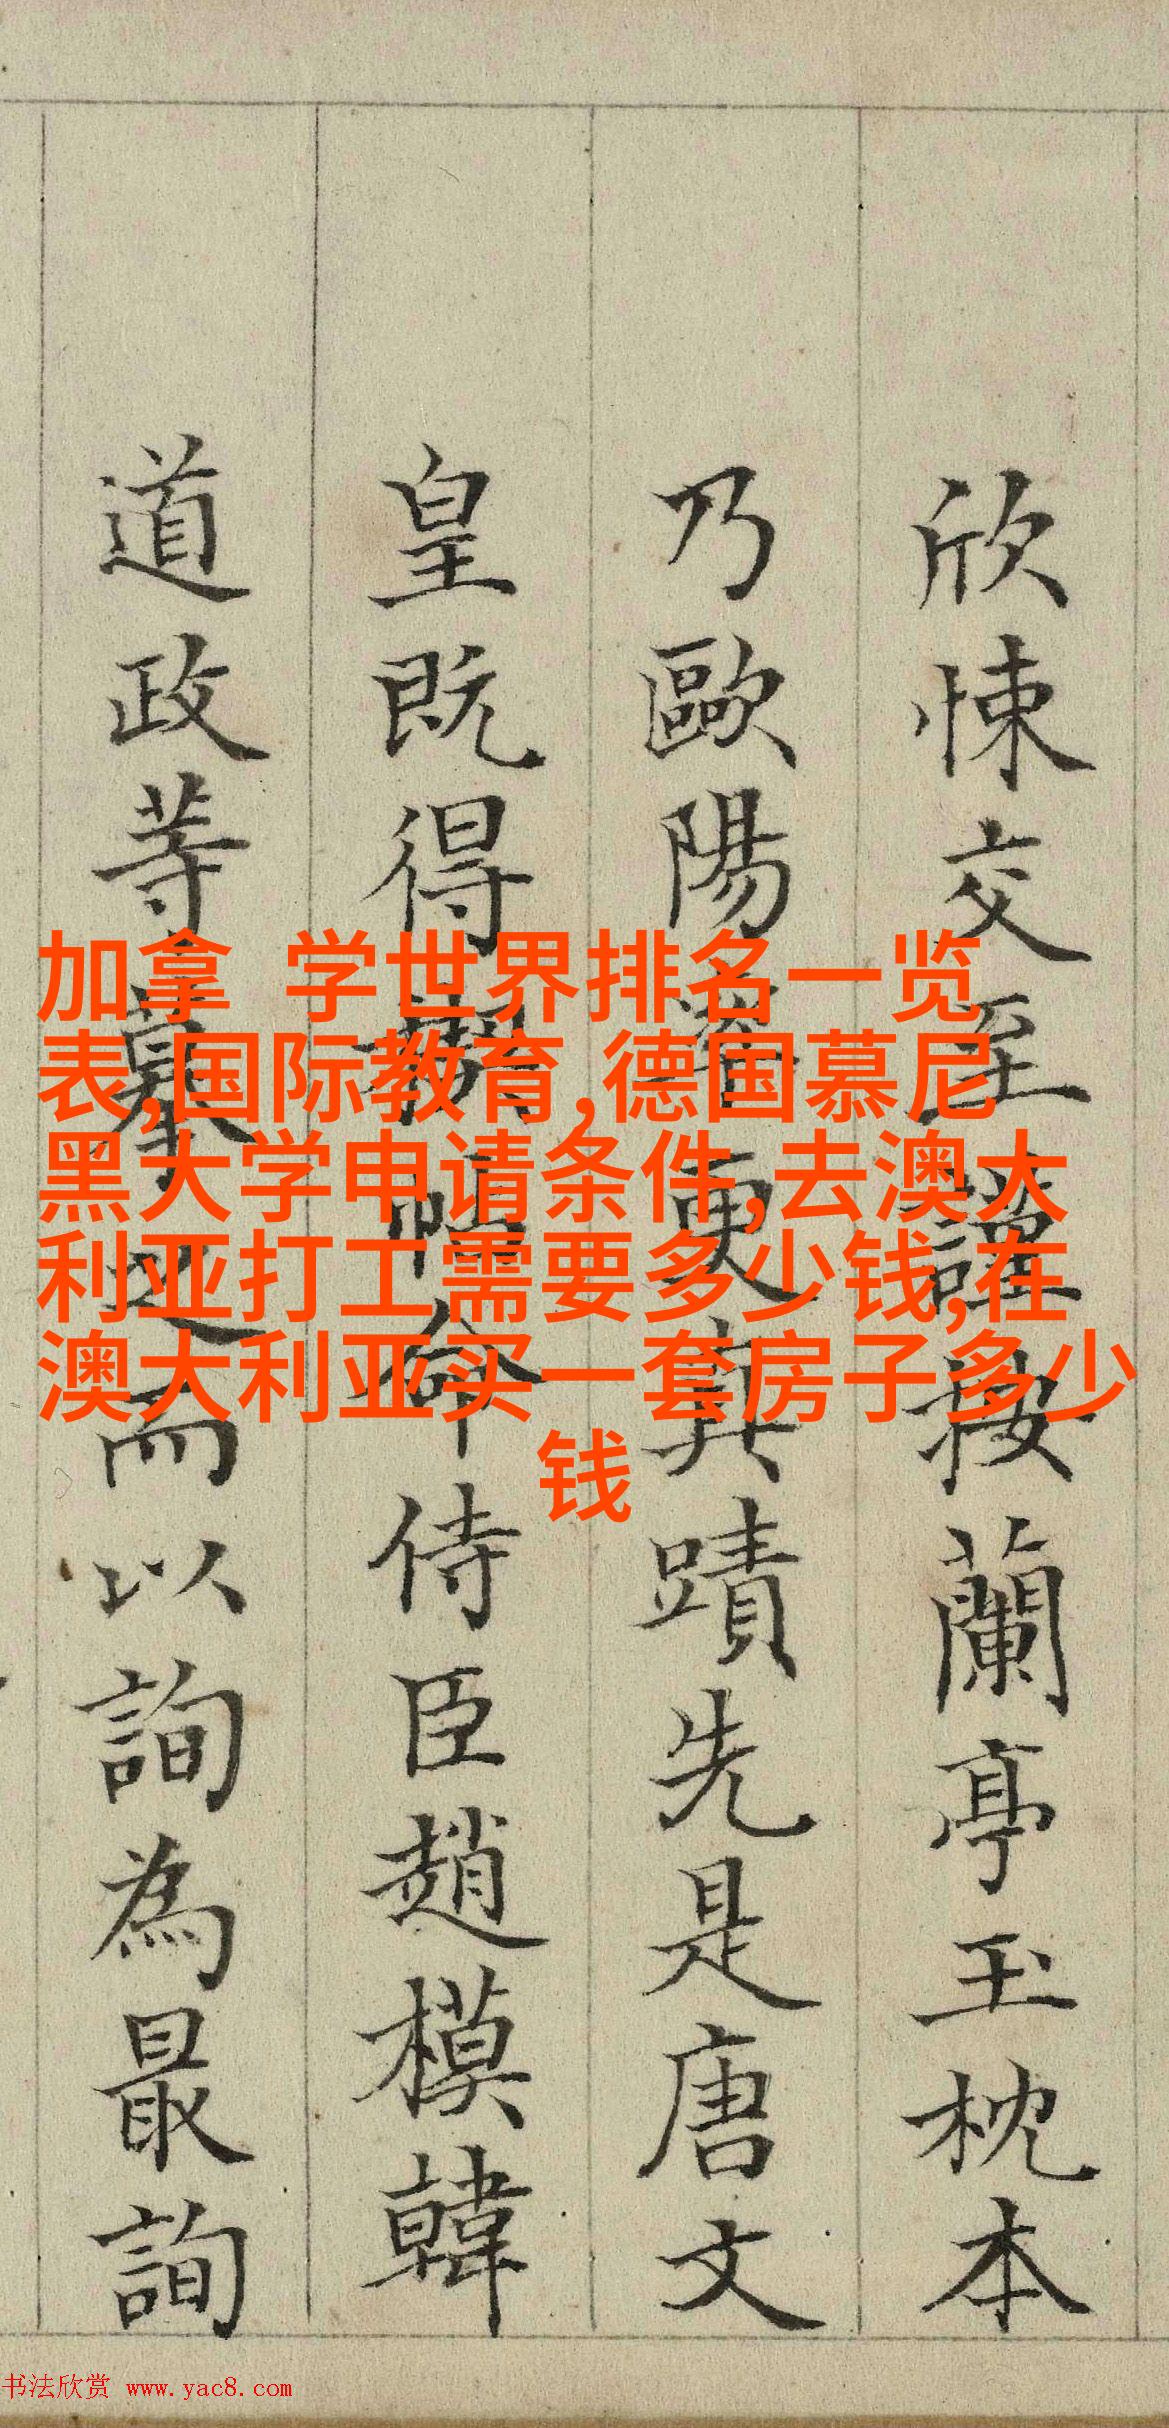 欣悚交至謹按蘭亭玉枕本
乃歐陽率更真蹟先是唐文
皇既得
侍臣趙模韓
道政等摹之而以詢為最詢
加拿 学世界排名一览
表,国际教育,德国慕尼
黑大学申请条件,去澳大
利亚打工需要多少钱,在
澳大利亚买一套房子多少
钱
书法欣赏 www.yac8.com